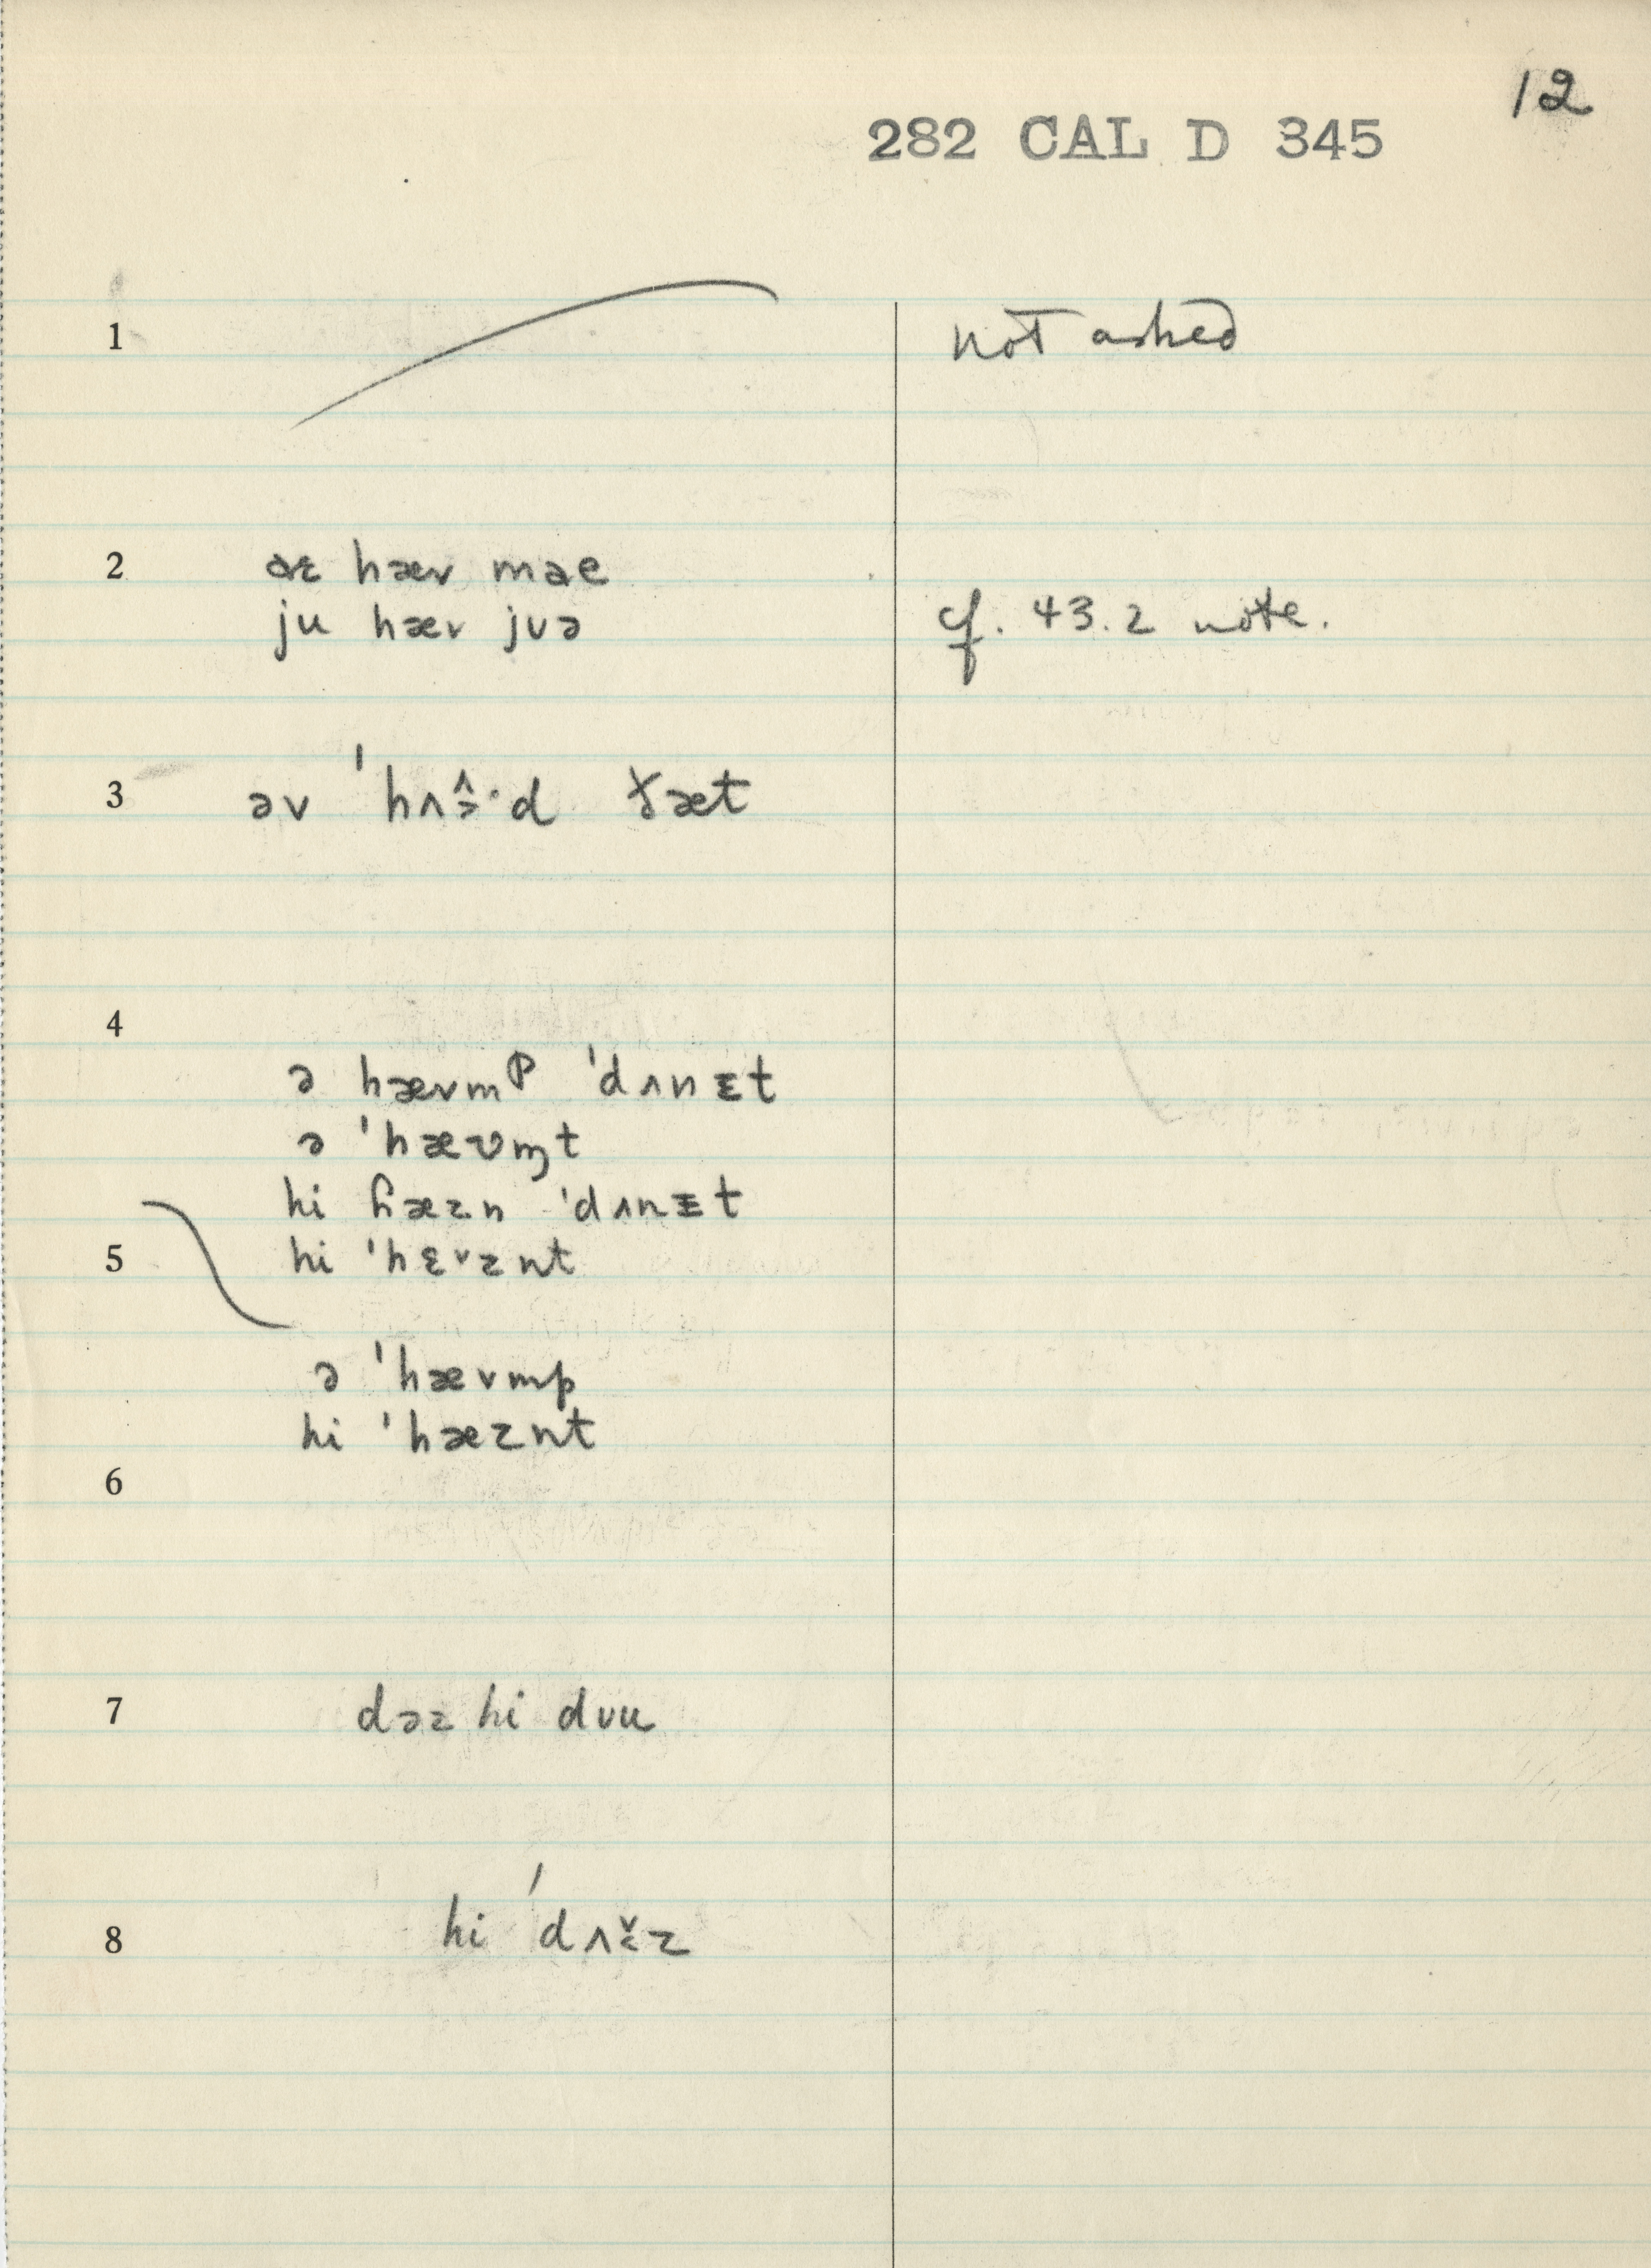 12
282 CAL D 345
1 not asked
2 hæv mae
ju hæv juə cf. 43.2 note.
3 əv ðæt
4
ə hævmᵖ ˈdʌnᵻt
ə ˈhæʋɱt
hi ɦæzn ˈdʌnᵻt
5 hi ˈhɛ˅znt
ə ˈhævmp
hi ˈhæznt
6
7 dəz hi dʊu
8 hi